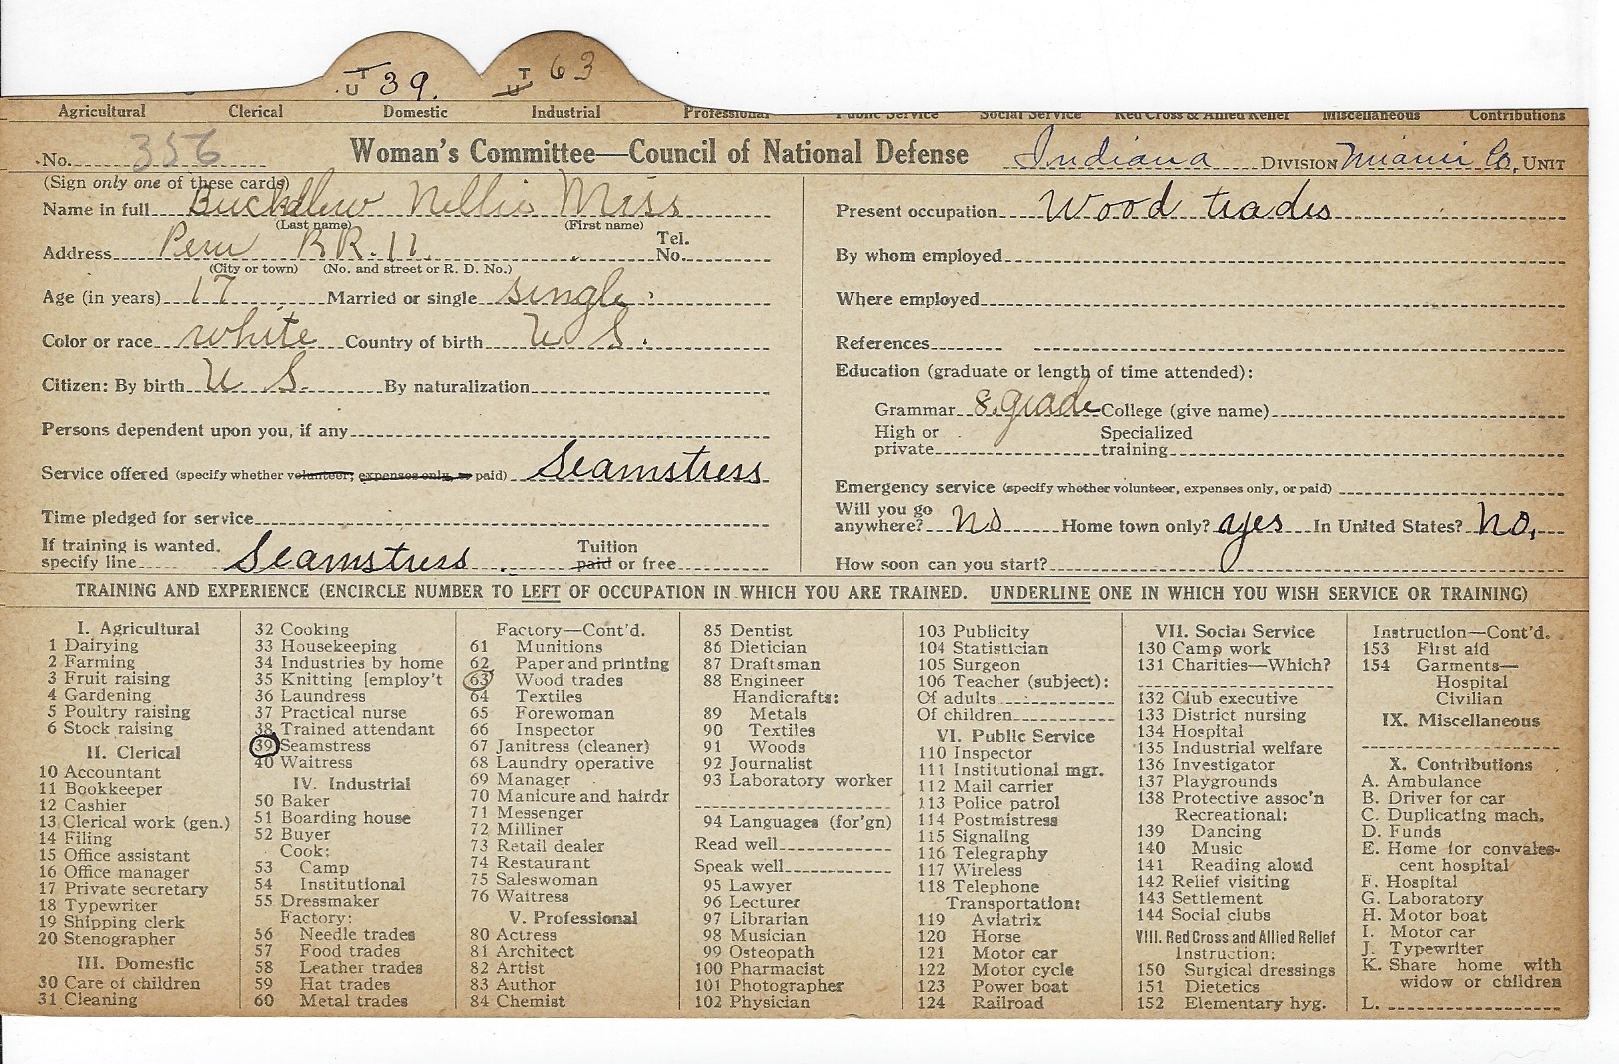 T U 39. T U 63
Agricultural Clerical Domestic Industrial Professional Public Service Social Service Red Cross & Allied Relief Miscellaneous Contributions
No. 356 Woman's Committee—Council of National Defense Indiana DIVISION Miami Co, UNIT
(Sign only one of these cards)
Name in full Buckdlew Nellie Miss
(Last name) (First name)
Address Peru RR. 11. Tel. No.
(City or town) (No. and street or R. D. No.)
Age (in years) 17 Married or single single
Color or race white Country of birth U S.
Citizen: By birth U S. By naturalization
Persons dependent upon you, if any
Service offered (specify whether volunteer, expenses only, or paid) Seamstress
Time pledged for service
If training is wanted, specify line Seamstress. Tuition paid or free
Present occupation Wood trades
By whom employed
Where employed
References
Education (graduate or length of time attended):
Grammar 8. grade College (give name)
High or private Specialized training
Emergency service (specify whether volunteer, expenses only, or paid)
Will you go anywhere? No Home town only? yes In United States? No.
How soon can you start?
TRAINING AND EXPERIENCE (ENCIRCLE NUMBER TO LEFT OF OCCUPATION IN WHICH YOU ARE TRAINED. UNDERLINE ONE IN WHICH YOU WISH SERVICE OR TRAINING)
I. Agricultural
1 Dairying
2 Farming
3 Fruit raising
4 Gardening
5 Poultry raising
6 Stock raising
II. Clerical
10 Accountant
11 Bookkeeper
12 Cashier
13 Clerical work (gen.)
14 Filing
15 Office assistant
16 Office manager
17 Private secretary
18 Typewriter
19 Shipping clerk
20 Stenographer
III. Domestic
30 Care of children
31 Cleaning
32 Cooking
33 Housekeeping
34 Industries by home
35 Knitting [employ't
36 Laundress
37 Practical nurse
38 Trained attendant
39 Seamstress
40 Waitress
IV. Industrial
50 Baker
51 Boarding house
52 Buyer
Cook:
53 Camp
54 Institutional
55 Dressmaker
Factory:
56 Needle trades
57 Food trades
58 Leather trades
59 Hat trades
60 Metal trades
Factory—Cont'd.
61 Munitions
62 Paper and printing
63 Wood trades
64 Textiles
65 Forewoman
66 Inspector
67 Janitress (cleaner)
68 Laundry operative
69 Manager
70 Manicure and hairdr
71 Messenger
72 Milliner
73 Retail dealer
74 Restaurant
75 Saleswoman
76 Waitress
V. Professional
80 Actress
81 Architect
82 Artist
83 Author
84 Chemist
85 Dentist
86 Dietician
87 Draftsman
88 Engineer
Handicrafts:
89 Metals
90 Textiles
91 Woods
92 Journalist
93 Laboratory worker
94 Languages (for'gn)
Read well
Speak well
95 Lawyer
96 Lecturer
97 Librarian
98 Musician
99 Osteopath
100 Pharmacist
101 Photographer
102 Physician
103 Publicity
104 Statistician
105 Surgeon
106 Teacher (subject):
Of adults
Of children
VI. Public Service
110 Inspector
111 Institutional mgr.
112 Mail carrier
113 Police patrol
114 Postmistress
115 Signaling
116 Telegraphy
117 Wireless
118 Telephone
Transportation:
119 Aviatrix
120 Horse
121 Motor car
122 Motor cycle
123 Power boat
124 Railroad
VII. Social Service
130 Camp work
131 Charities—Which?
132 Club executive
133 District nursing
134 Hospital
135 Industrial welfare
136 Investigator
137 Playgrounds
138 Protective assoc'n
Recreational:
139 Dancing
140 Music
141 Reading aloud
142 Relief visiting
143 Settlement
144 Social clubs
VIII. Red Cross and Allied Relief
Instruction:
150 Surgical dressings
151 Dietetics
152 Elementary hyg.
Instruction—Cont'd.
153 First aid
154 Garments—
Hospital
Civilian
IX. Miscellaneous
X. Contributions
A. Ambulance
B. Driver for car
C. Duplicating mach.
D. Funds
E. Home for convales-
cent hospital
F. Hospital
G. Laboratory
H. Motor boat
I. Motor car
J. Typewriter
K. Share home with
widow or children
L.